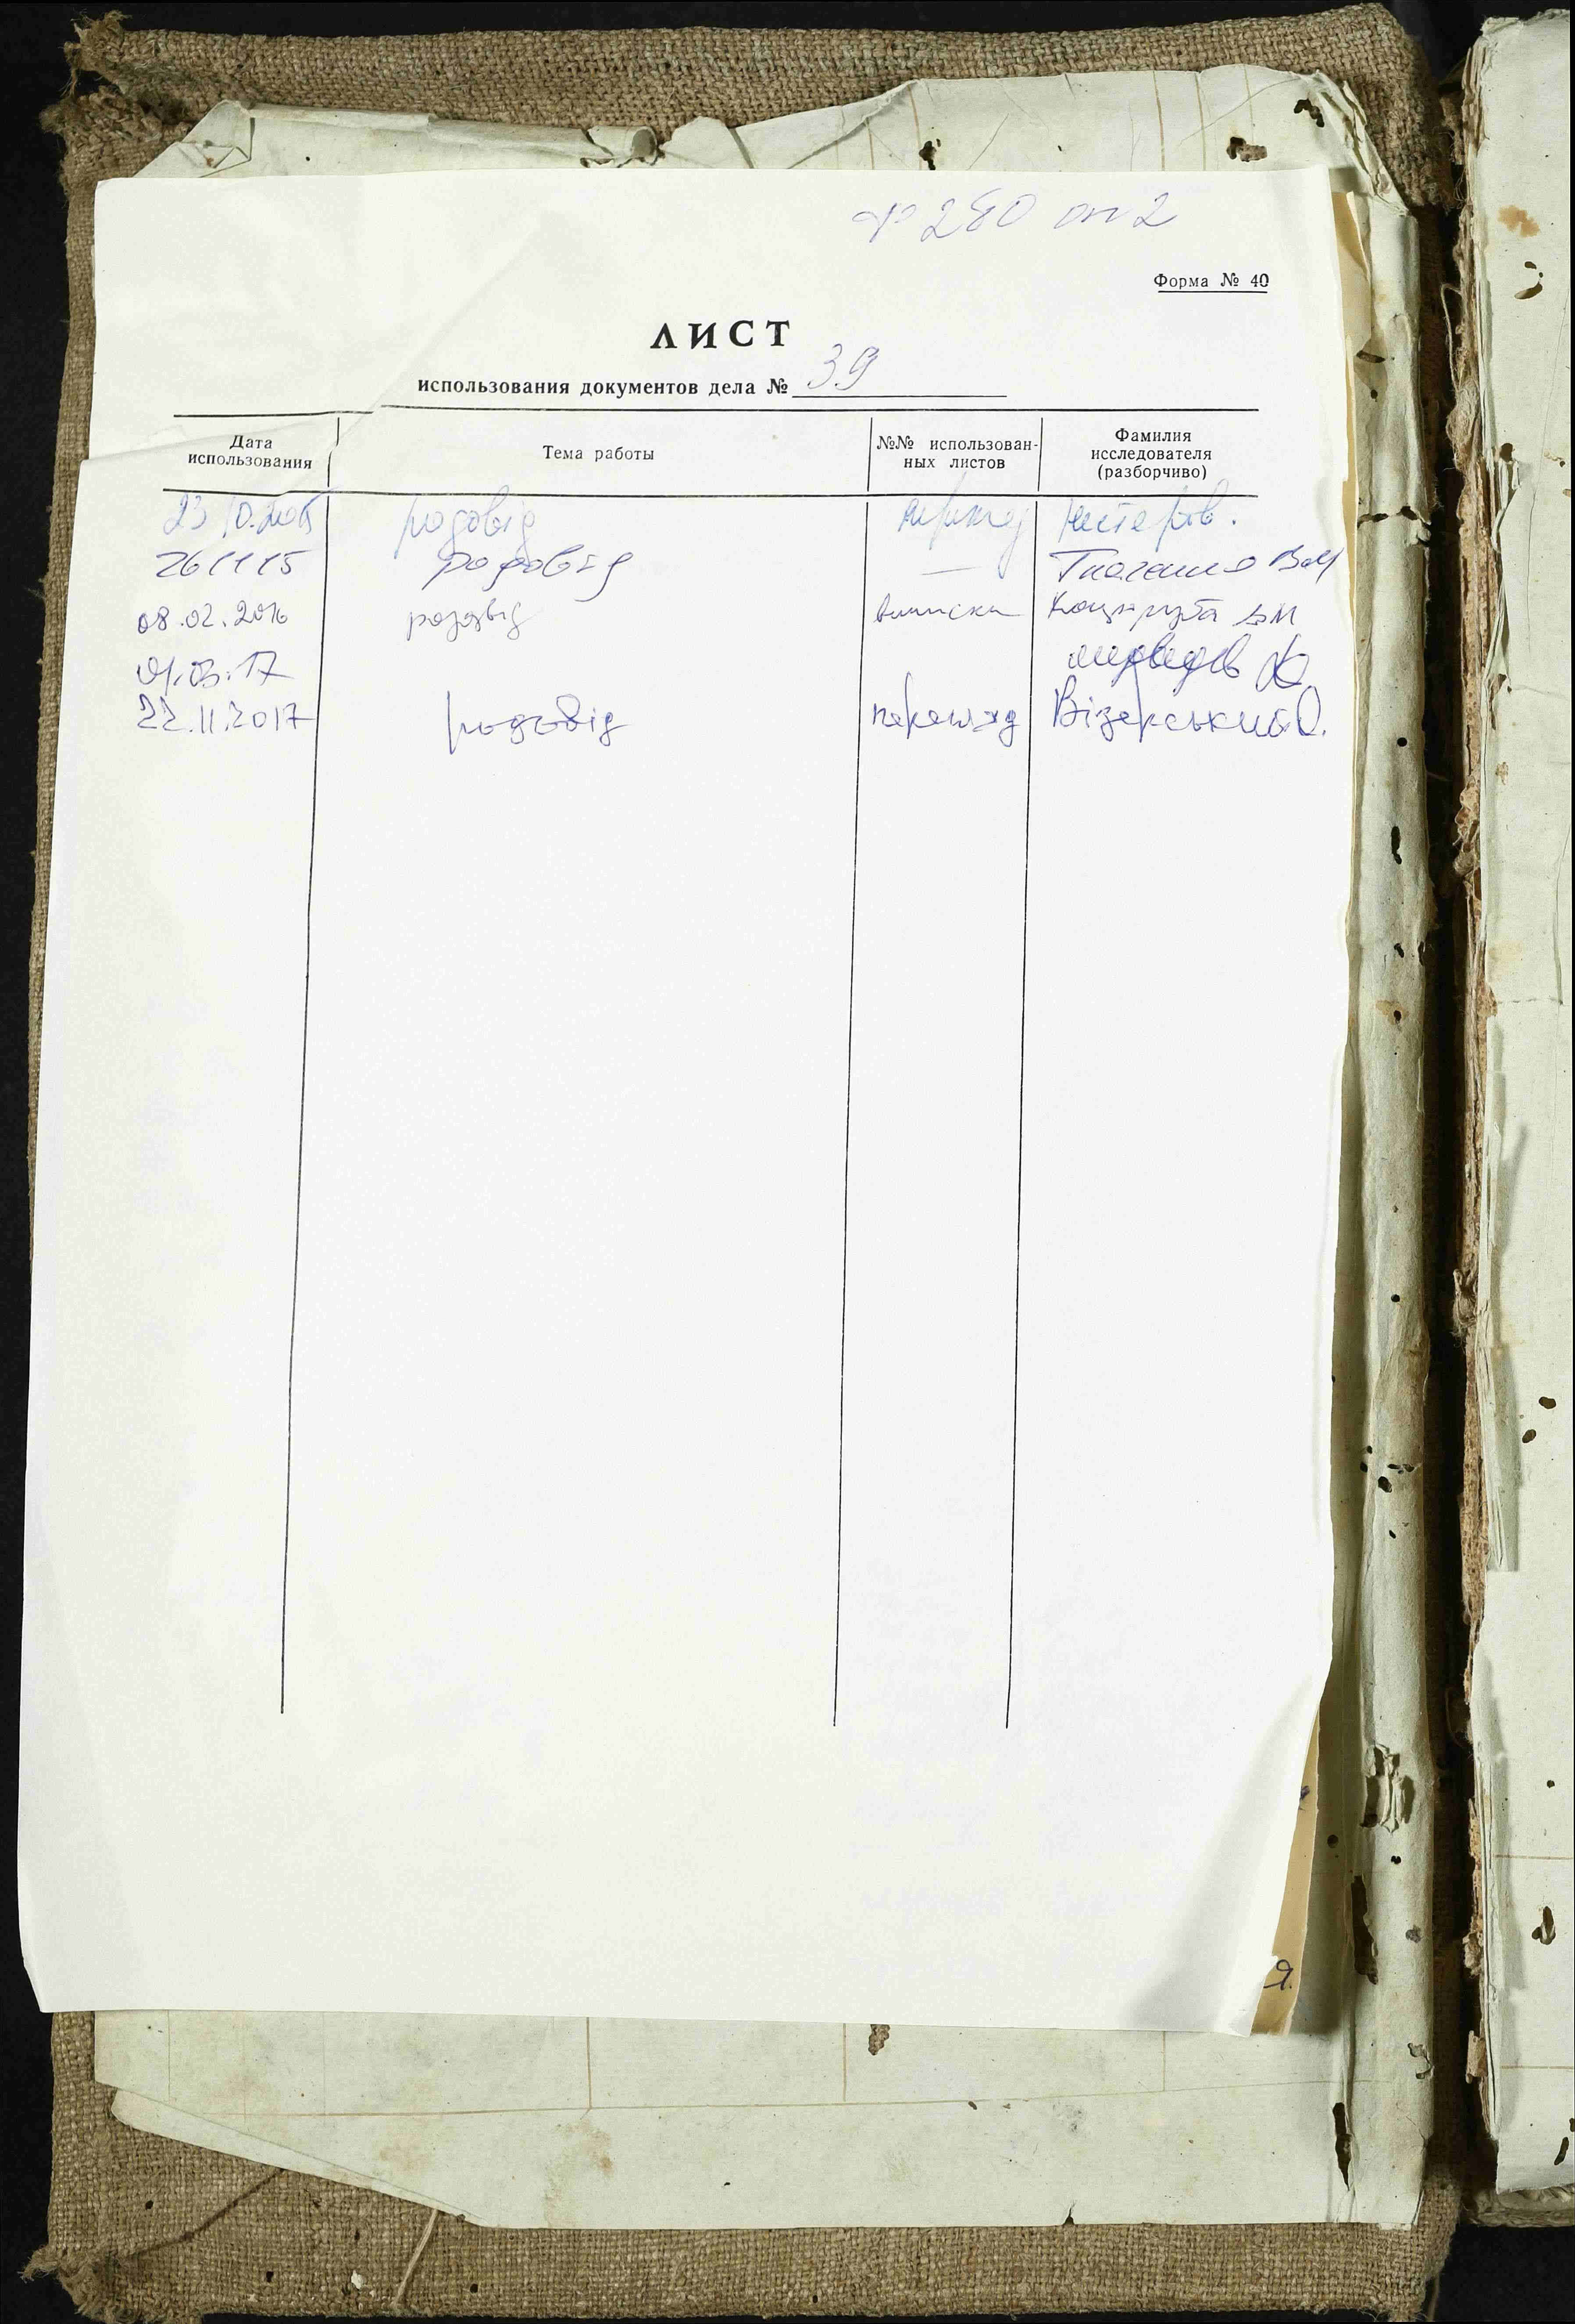 ф 280 оп 2
Форма № 40
ЛИСТ
использования документов дела № 39
Дата использования
Тема работы
№№ использован-
ных листов
Фамилия
исследователя
(разборчиво)
23.10.2015 родовід Нестеров.
261115 родовід — Ткаченко ВМ
08.02.2016 родовід виписки
01.03.17 Медведєв
22.11.2017 родовід перегляд Візерський О.
я.